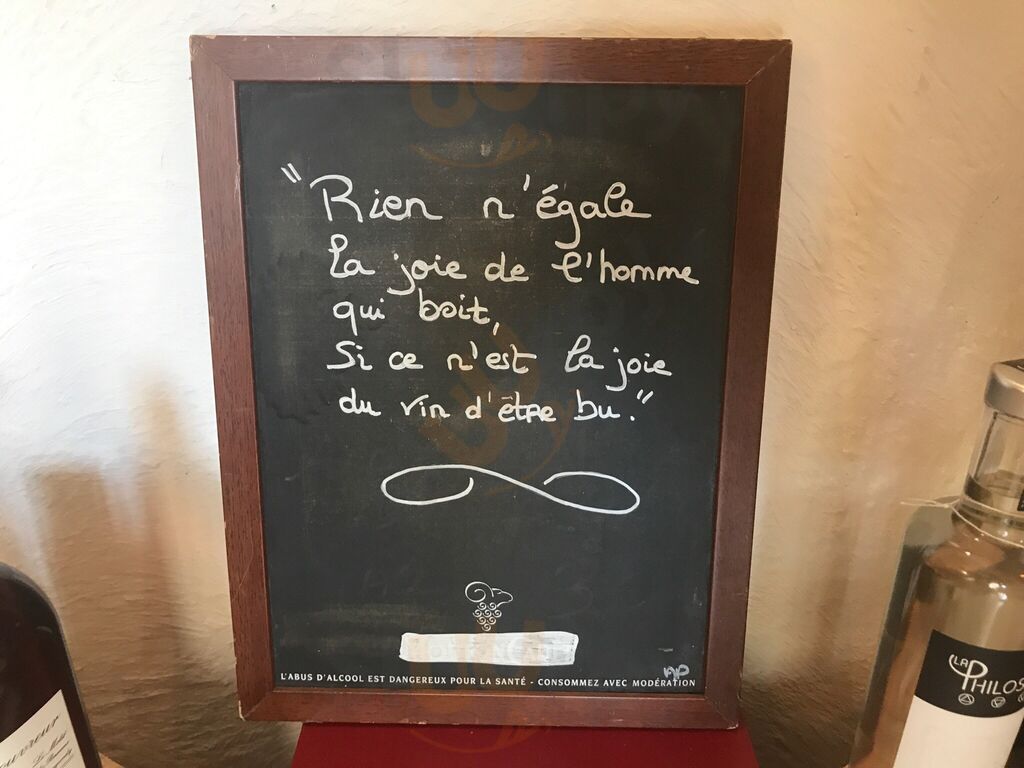 "Rien n'égale
la joie de l'homme
qui boit,
Si ce n'est la joie
du vin d'être bu."
L'ABUS D'ALCOOL EST DANGEREUX POUR LA SANTÉ - CONSOMMEZ AVEC MODÉRATION
LA
PHILOS